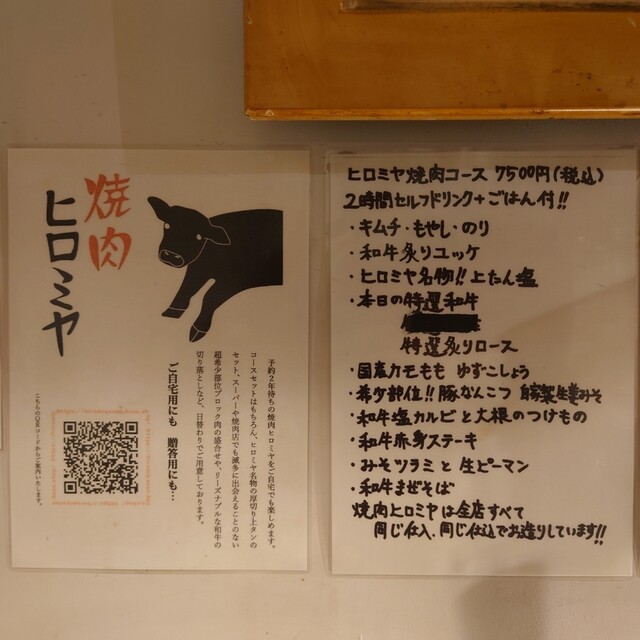 焼肉
ヒロミヤ
予約２年待ちの焼肉ヒロミヤをご自宅でも楽しめます。
コースセットはもちろん、ヒロミヤ名物の厚切り上タンの
セット、スーパーや焼肉店でも滅多に出会えることのない
超希少部位ブロック肉の盛合せや、リーズナブルな和牛の
切り落としなど、日替わりでご用意しております。
ご自宅用にも　贈答用にも…
こちらのQRコードからご案内いたします。
ヒロミヤ焼肉コース 7500円(税込)
2時間セルフドリンク+ごはん付!!
・キムチ・もやし・のり
・和牛炙りユッケ
・ヒロミヤ名物!!上たん塩
・本日の特選和牛
特選炙りロース
・国産カモもも ゆずこしょう
・希少部位!!豚なんこつ 自家製生姜みそ
・和牛塩カルビと大根のつけもの
・和牛赤身ステーキ
・みそツラミと生ピーマン
・和牛まぜそば
焼肉ヒロミヤは全店すべて
同じ仕入、同じ仕込でお造りしています!!